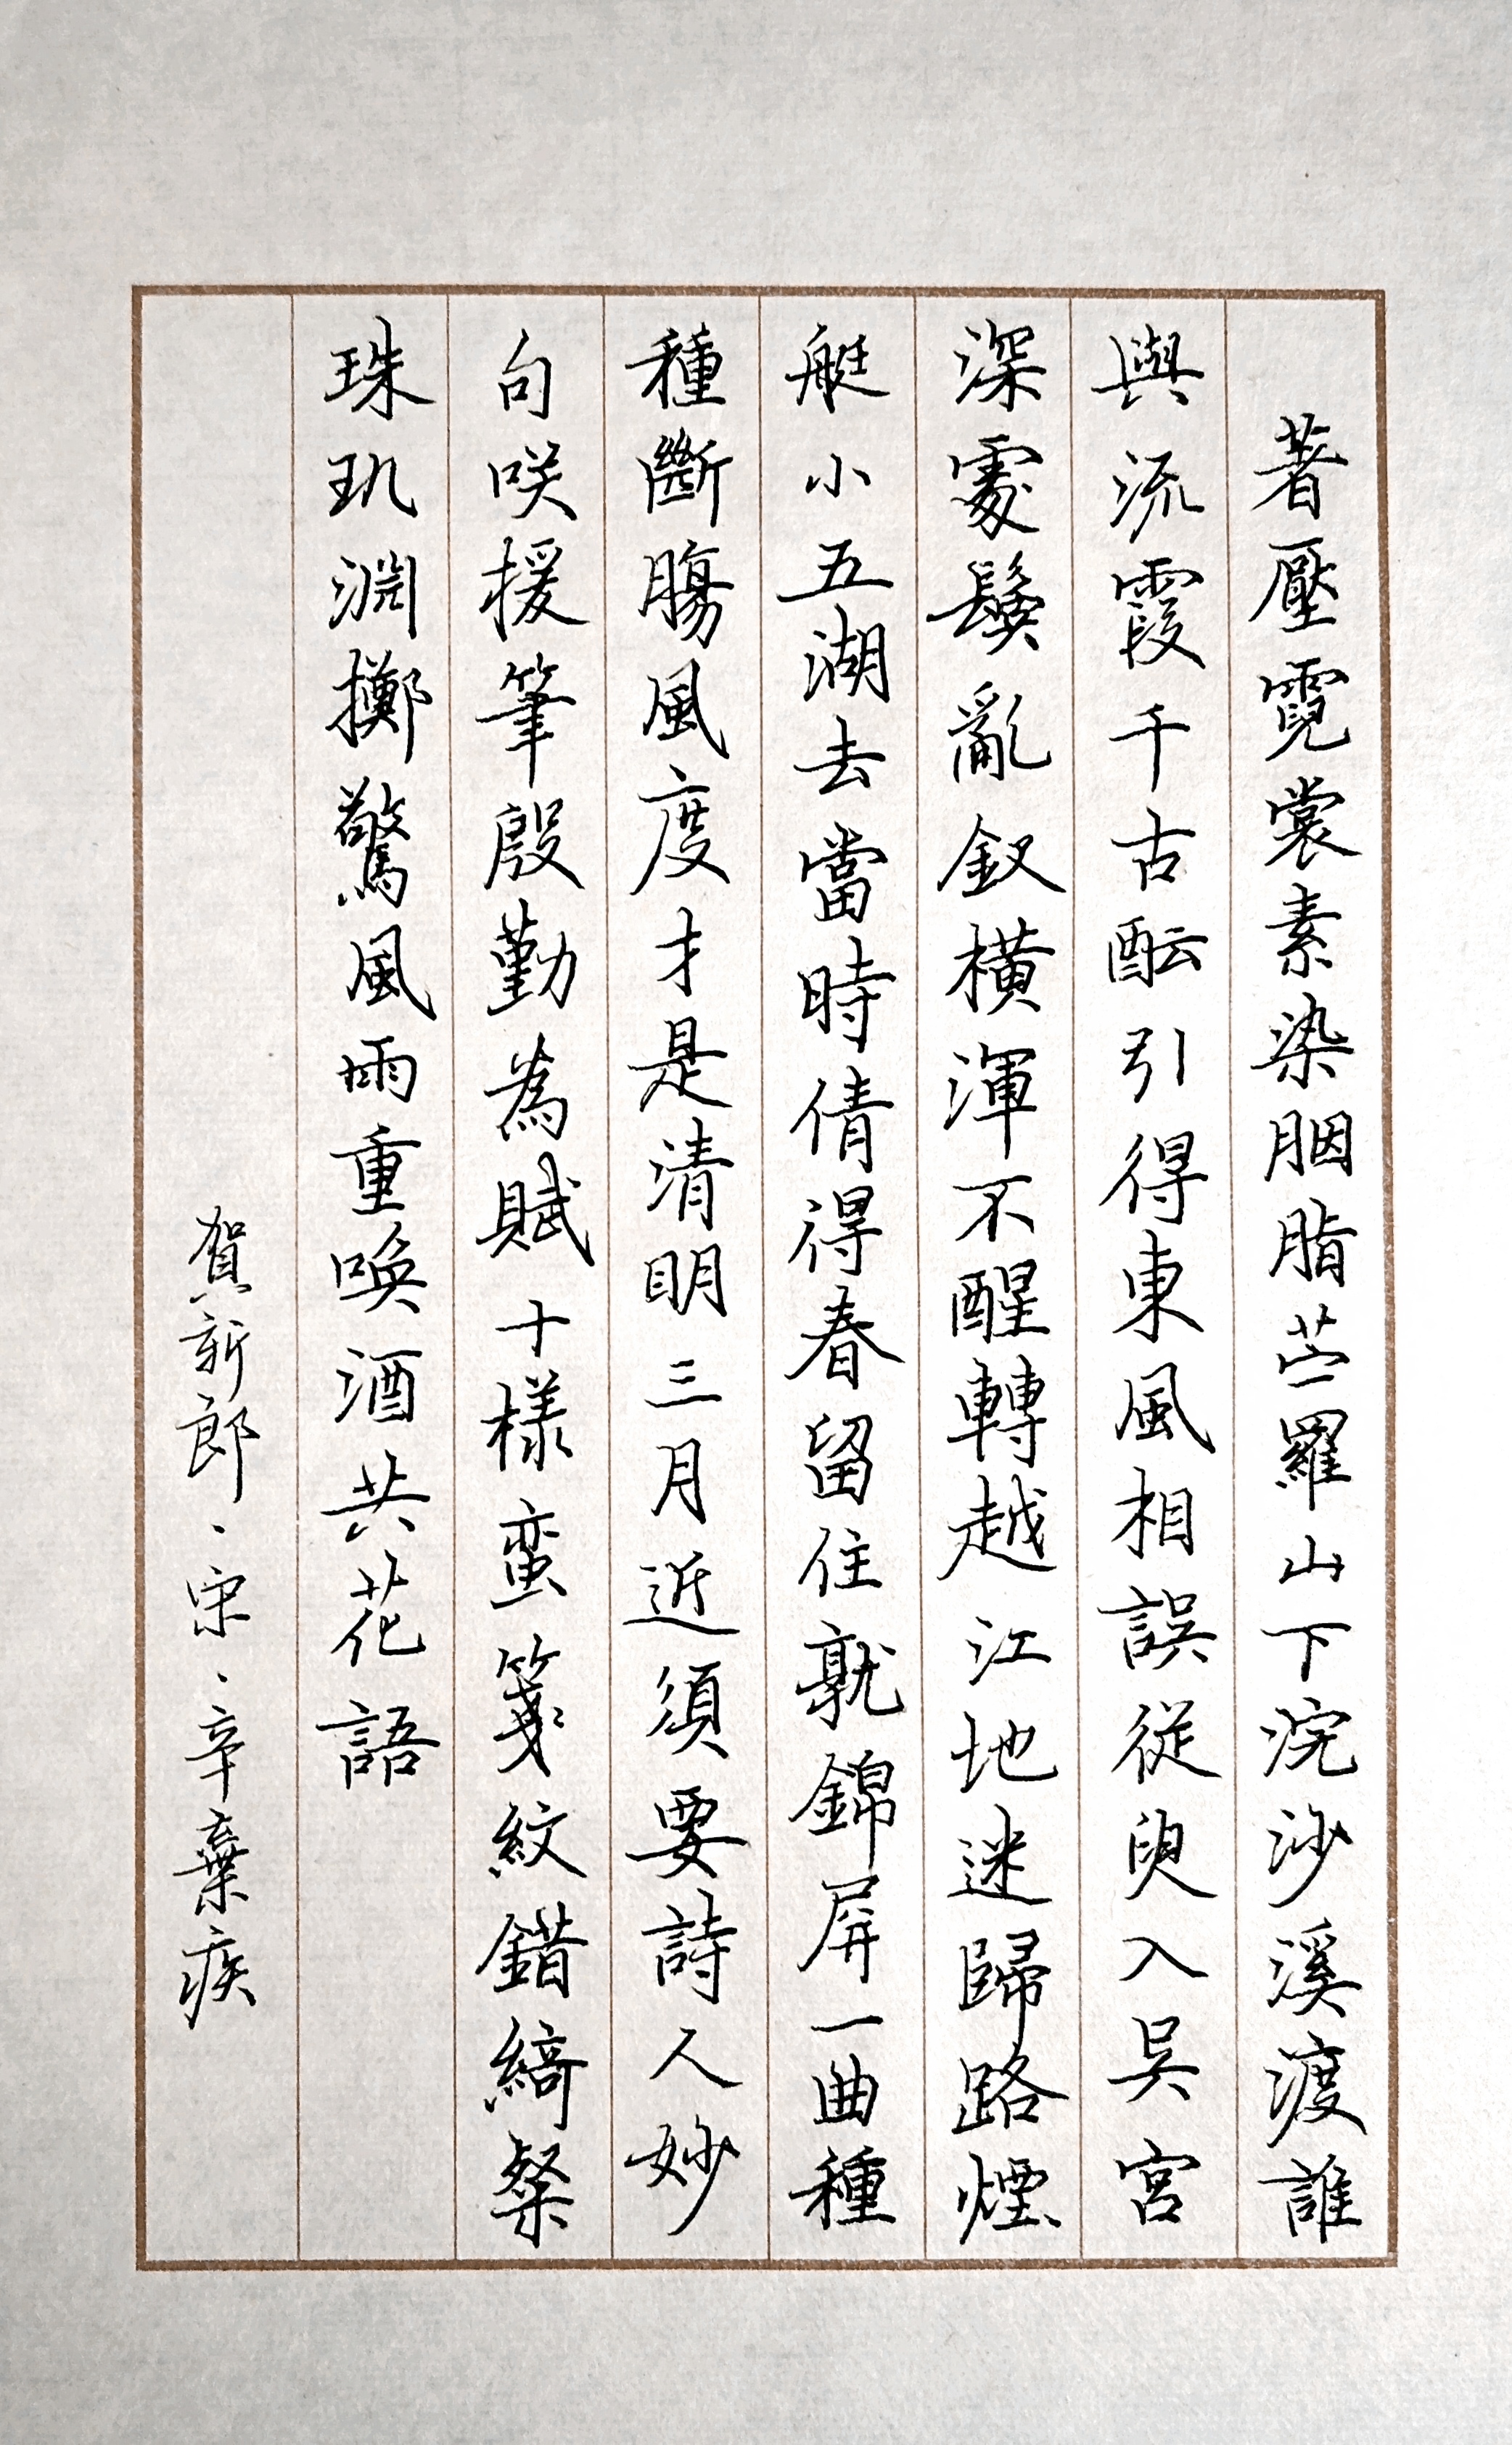 著壓霓裳素染胭脂苧羅山下浣沙溪渡誰
與流霞千古酝引得東風相誤從臾入吳宮
深處鬢亂釵橫渾不醒轉越江地迷歸路煙
艇小五湖去當時倩得春留住就錦屏一曲種
種斷腸風度才是清明三月近須要詩人妙
句咲援筆殷勤為賦十樣蛮箋紋錯綺粲
珠玑淵擲驚風雨重喚酒共花語
賀新郎、宋、辛棄疾